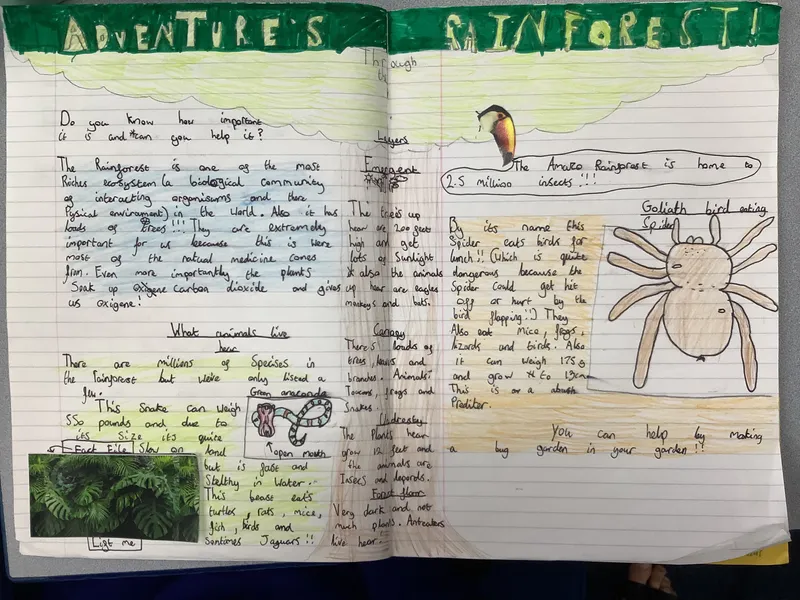 ADVENTURE'S
Through
the
RAINFOREST!
Do you know how important
it is and can you help it?
The Rainforest is one of the most
Riches ecosystem (a biological community
of interacting organisums and there
Pysical enviroment) in the World. Also it has
loads of trees!!! They are extremely
important for us because this is were
most of the natural medicine comes
from. Even more importantly the plants
Soak up oxigene carbon dioxide and gives
us oxigene!
What animals live
hear
There are millions of Specises in
the rainforest but we've only listed a
few.
Green anaconda
This Snake can weigh
550 pounds and due to
its Size it's quite
Slow on land
but is fast and
Stelthy in water.
This beast eats
turtles, rats, mice,
fish, birds and
Somtimes Jaguars!!
open mouth
Fact File
Lift me
Layers
Emergent
The trees up
hear are 200 feet
high and get
lots of Sunlight
also the animals
up hear are eagles
monkeys and bats.
Canopy
There's loads of
trees, leaves and
branches. Animals
Toucans, frogs and
Snakes.
Understory
The Plants hear
grow 12 feet and
the animals are
Insecs and lepords.
Forest floor
Very dark and not
much plants. Anteaters
live hear!
The Amazo Rainforest is home to
2.5 million insects!!!
Goliath bird eating
Spider
By its name this
Spider eats birds for
lunch!! (Which is quite
dangerous because the
Spider could get hit
off or hurt by the
bird flapping!!) They
Also eat mice, frogs,
lizards and birds. Also
it can weigh 175g
and grow to 13cm
This is a
Prediter.
You can help by making
a bug garden in your garden!!